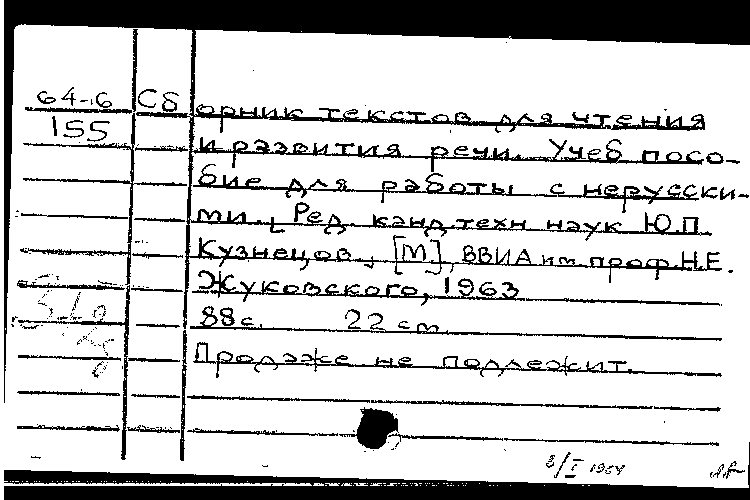 64-6 Сб
орник текстов для чтения
155
и развития речи. Учеб посо-
бие для работы с нерусски-
ми. Ред. канд. техн наук Ю.П.
Кузнецов. [М], ВВИА им проф. Н.Е.
Жуковского, 1963
88 с. 22 см
Продаже не подлежит.
8/I 1964